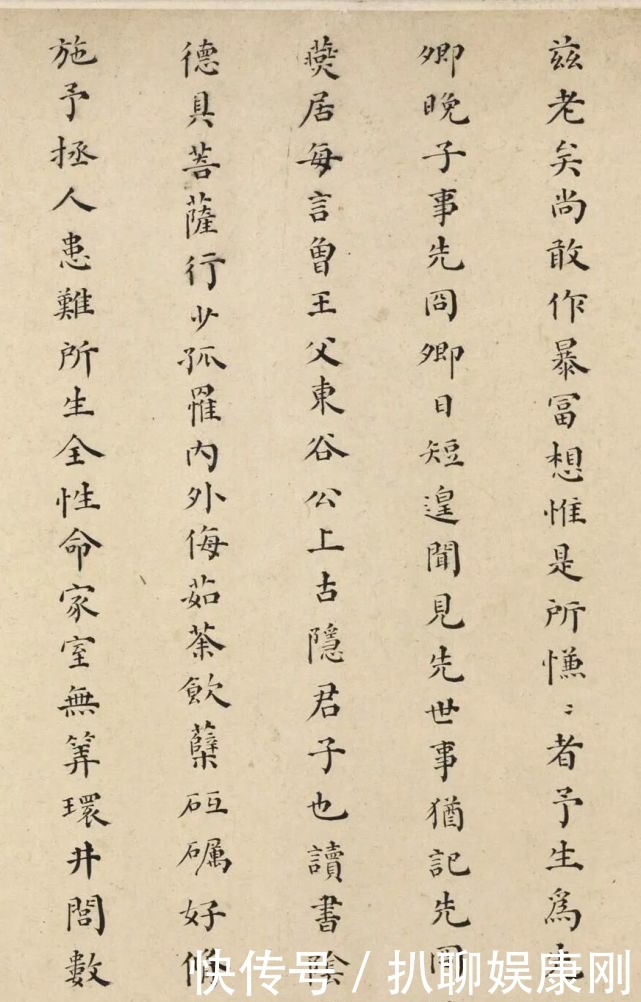 兹老矣尚敢作暴冨想惟是所慊〻者予生為先
卿晚子事先冏卿日短遑聞見先世事猶記先冏
燕居每言曾王父東谷公上古隱君子也讀書陰
德具菩薩行少孤罹内外侮茹荼飲蘗砥礪好脩
施予拯人患難所生全性命家室無筭環井閭數
快传号 / 扒聊娱康刚